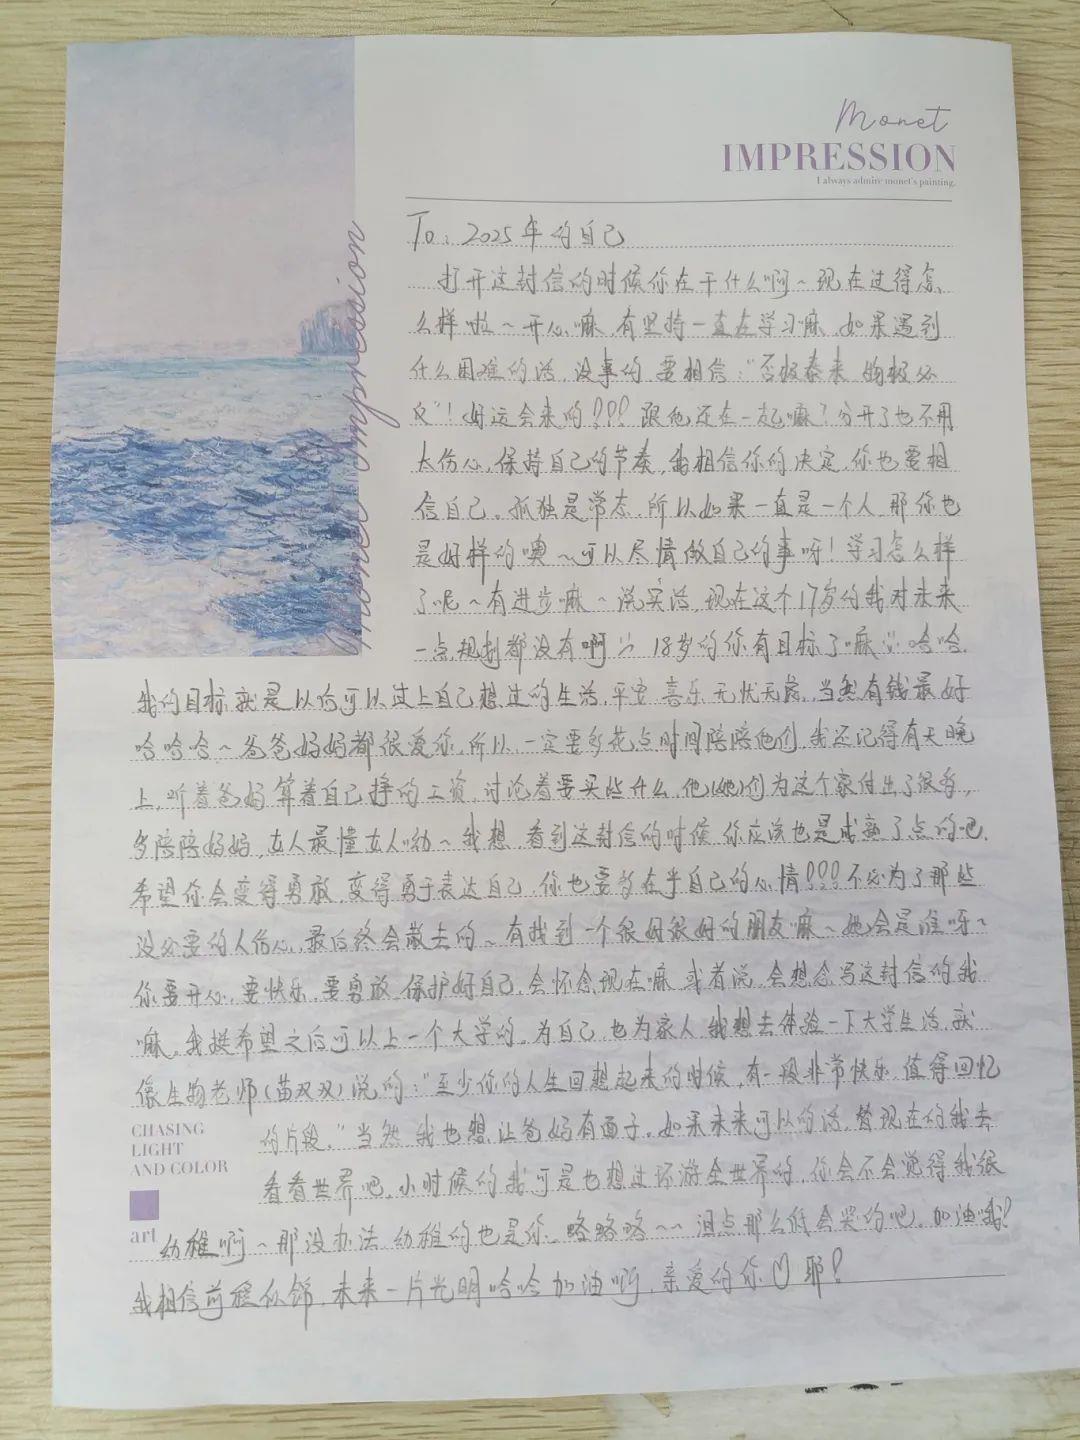 Monet
IMPRESSION
I always admire monet's painting.
Monet Impression
To: 2025年的自己
打开这封信的时候你在干什么啊~现在过得怎
么样啦~开心嘛,有坚持一直在学习嘛,如果遇到
什么困难的话,没事的,要相信:"否极泰来,物极必
反"!好运会来的!!!跟他还在一起嘛?分开了也不用
太伤心,保持自己的节奏,我相信你的决定,你也要相
信自己。孤独是常态,所以如果一直是一个人,那你也
是好样的噢~可以尽情做自己的事呀!学习怎么样
了呢~有进步嘛~说实话,现在这个17岁的我对未来
一点规划都没有啊 18岁的你有目标了嘛 哈哈,
我的目标就是以后可以过上自己想过的生活,平安,喜乐,无忧无虑,当然有钱最好
哈哈哈~爸爸妈妈都很爱你,所以一定要多花点时间陪陪他们,我还记得有天晚
上,听着爸妈算着自己挣的工资,讨论着要买些什么,他(她)们为这个家付出了很多,
多陪陪妈妈,女人最懂女人呦~我想,看到这封信的时候,你应该也是成熟了点的吧,
希望你会变得勇敢,变得勇于表达自己,你也要多在乎自己的心情!!!不必为了那些
没必要的人伤心,最后终会散去的~有找到一个很好很好的朋友嘛~她会是谁呀~
你要开心,要快乐,要勇敢,保护好自己,会怀念现在嘛,或者说,会想念写这封信的我
嘛,我挺希望之后可以上一个大学的,为自己,也为家人,我想去体验一下大学生活,就
像生物老师(苗双双)说的:"至少你的人生回想起来的时候,有一段非常快乐,值得回忆
的片段,"当然,我也想让爸妈有面子,如果未来可以的话,替现在的我去
看看世界吧,小时候的我可是也想过环游全世界的,你会不会觉得我很
幼稚啊~那没办法,幼稚的也是你,略略略~~泪点那么低会哭的吧,加油哦!
我相信前程似锦,未来一片光明哈哈加油啊,亲爱的你♡耶!
CHASING
LIGHT
AND COLOR
art